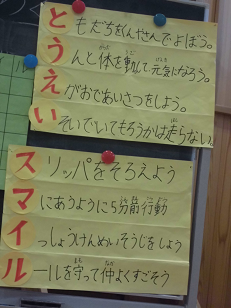 ともだちをくんさんでよぼう。
うんと体を動かして、元気になろう。
えがおであいさつをしよう。
いそいでいてもろうかは走らない。
スリッパをそろえよう
マにあうように5分前行動
イっしょうけんめいそうじをしよう
ルールを守って仲よくすごそう